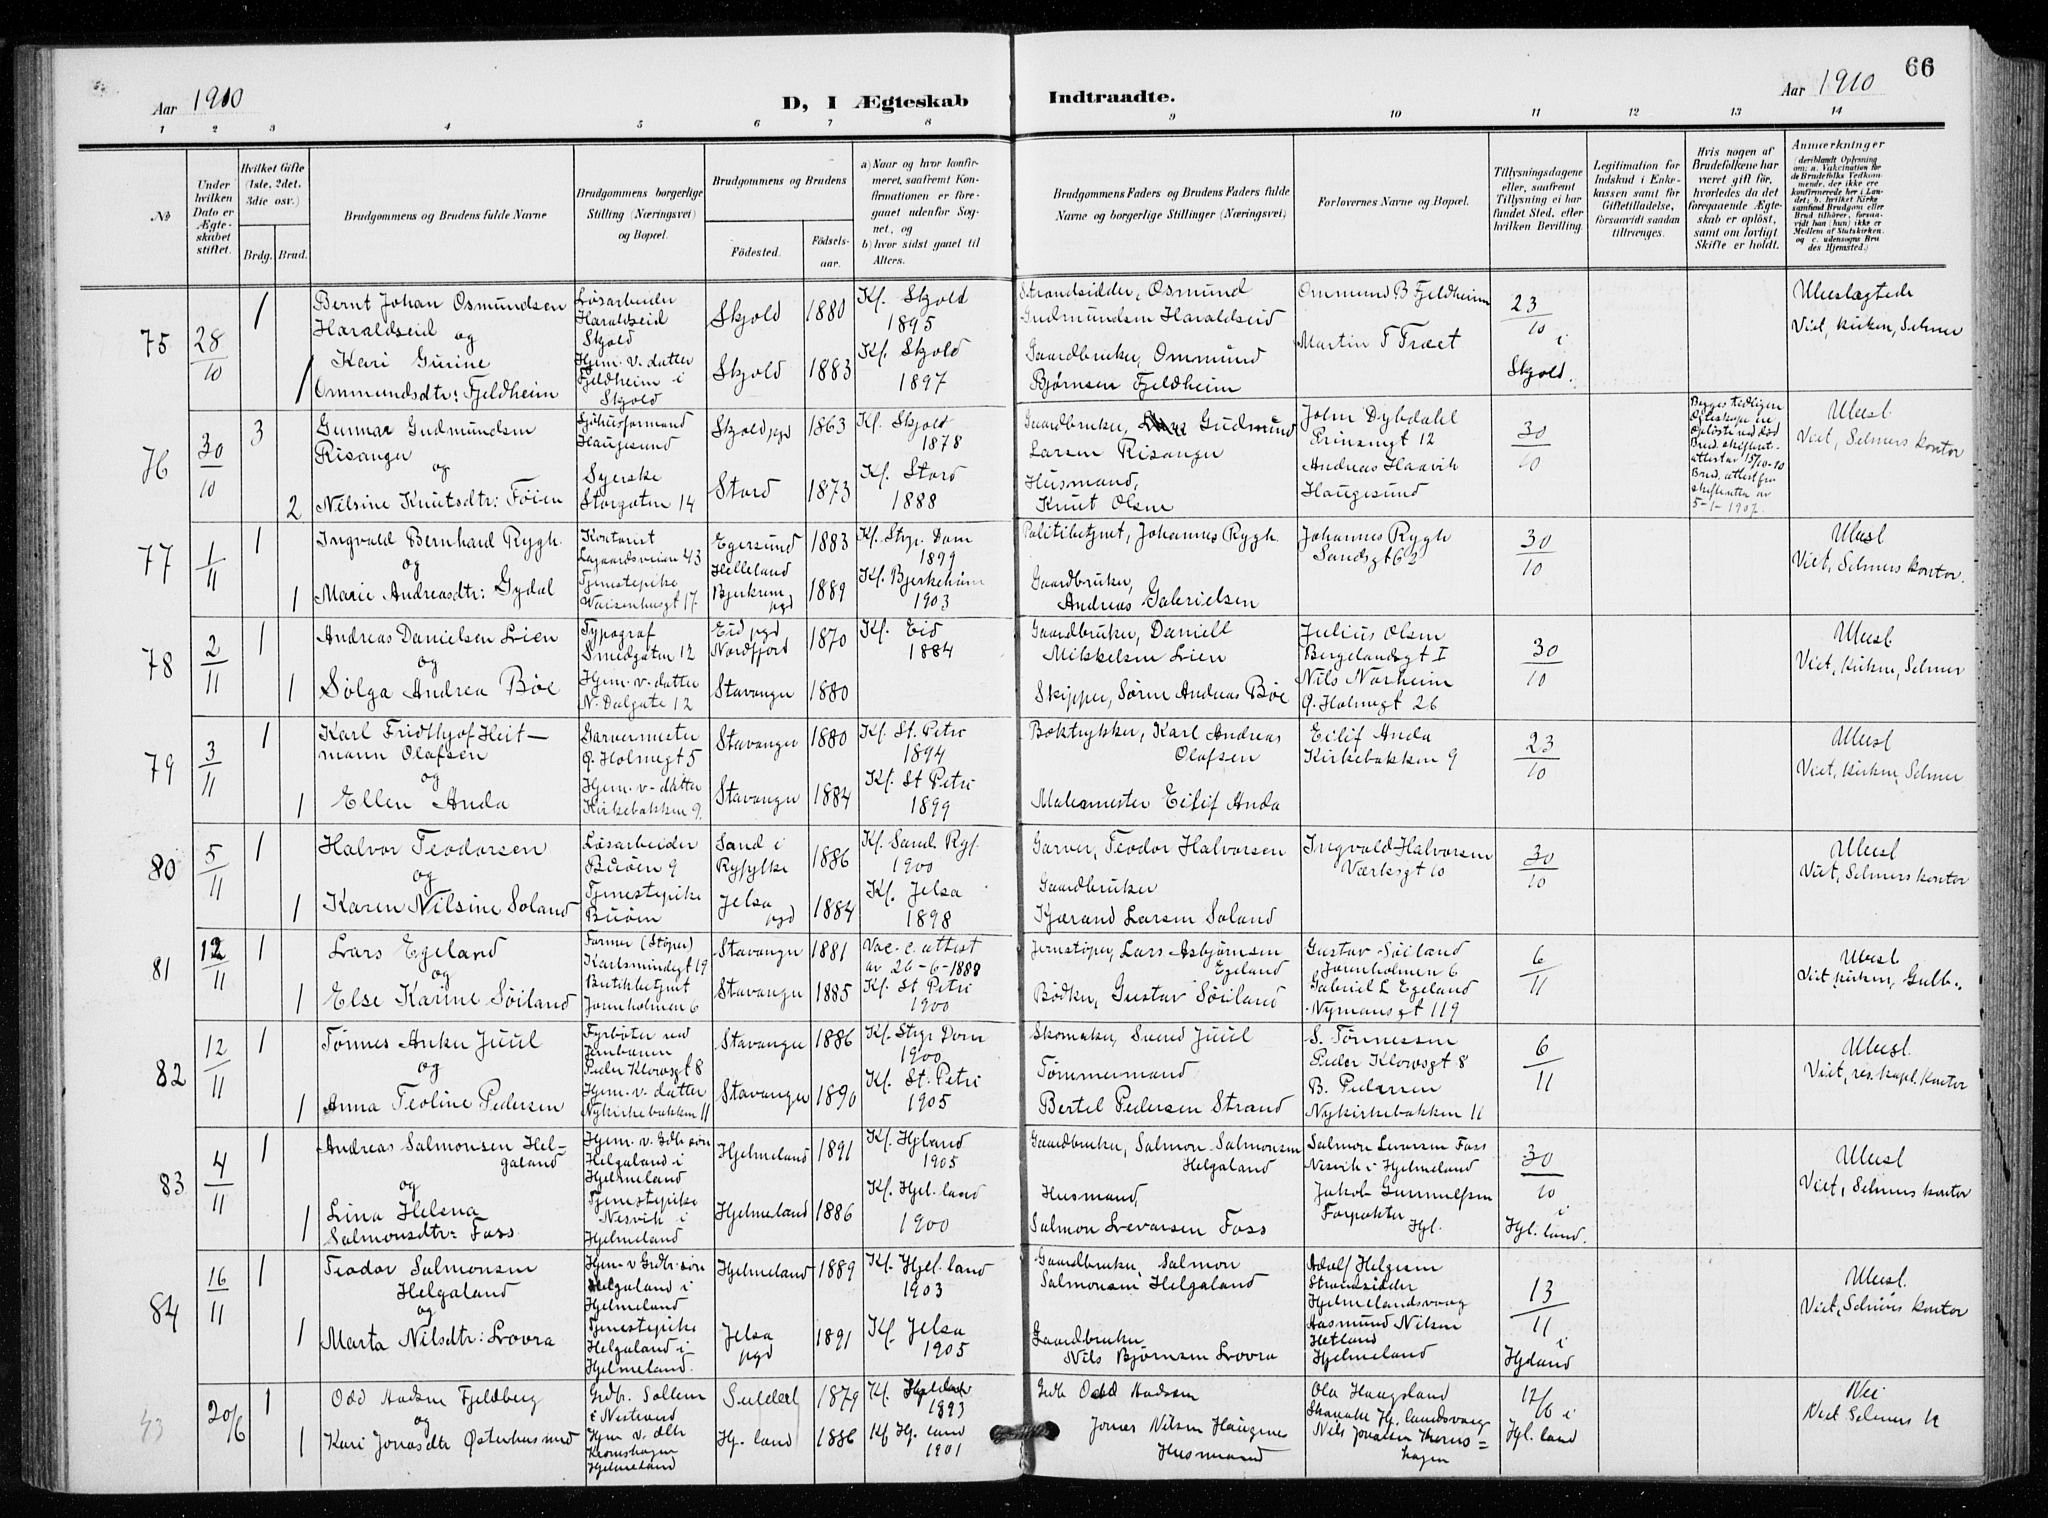 66
Aar 1910
D, I Ægteskab Indtraadte.
Aar 1910
1 2 3 4 5 6 7 8 9 10 11 12 13 14
No
Under hvilken Dato er Ægteskabet stiftet.
Hvilket Gifte (1ste, 2det, 3die osv.)
Brdg. Brud.
Brudgommens og Brudens fulde Navne
Brudgommens borgerlige Stilling (Næringsvei) og Bopæl.
Brudgommens og Brudens
Födested.
Födselsaar.
a) Naar og hvor konfirmeret, saafremt Konfirmationen er foregaaet udenfor Sognet, og
b) hvor sidst gaaet til Alters.
Brudgommens Faders og Brudens Faders fulde Navne og borgerlige Stillinger (Næringsvei)
Forlovernes Navne og Bopæl.
Tillysningsdagene eller, saafremt Tillysning ei har fundet Sted, efter hvilken Bevilling.
Legitimation for Indskud i Enkekassen samt for Giftetilladelse, forsaavidt saadan tiltrænges.
Hvis nogen af Brudefolkene har været gift för, hvorledes da det foregaaende Ægteskab er oplöst, samt om lovligt Skifte er holdt.
Anmærkninger
75
28/10
1
Bernt Johan Osmundsen
Haraldseid og
1 Kari Gurine
Ommundsdtr: Fjeldheim
Løsarbeider
Haraldseid
Skjold
Hjem. v. datter
Fjeldheim i
Skjold
Skjold 1880
Skjold 1883
Kf. Skjold
1895
Kf. Skjold
1897
Strandsidder, Osmund
Gudmundsen Haraldseid
Gaardbruker, Ommund
Bjørnsen Fjeldheim
Ommund B Fjeldheim
Martin T Træet
23/10 i
Skjold.
Ubeslægtede
Viet, kirken, Selmer
76
30/10
3
Gunnar Gudmundsen
Risanger
og
2 Nilsine Knutsdtr: Føien
Sjøhusformand
Haugesund
Syerske
Storgaten 14
Skjold pgd 1863
Stord 1873
Kf. Skjold
1878
Kf. Stord
1888
Gaardbruker, Gudmund
Larsen Risanger
Husmand,
Knut Olsen
John Dybdahl
Prinsensgt 12
Andreas Haavik
Haugesund
30/10
5-1-1907.
Ubesl
Viet, Selmers kontor
77
1/11
1
Ingvald Bernhard Rygh
og
1 Marie Andreasdtr: Gydal
Kontorist
Lagaardsveien 43
Tjenestepike
Waisenhusgt 17
Egersund
Helleland 1883
Bjerkrem pgd 1889
Kf. Stvgr. Dom
1899
Kf. Bjerkeheim
1903
Politibetjent, Johannes Rygh
Gaardbruker,
Andreas Gabrielsen
Johannes Rygh
Sandsgt 62
30/10
Ubesl
Viet, Selmers kontor.
78
2/11
1
Andreas Danielsen Lien
og
1 Solga Andrea Bøe
Typograf
Smedgaten 12
Hjem. v. datter
N. Dalgate 12
Eid pgd
Nordfjord 1870
Stavanger 1880
Kf. Eid
1884
Gaardbruker, Daniell
Mikkelsen Lien
Skipper, Sørn Andreas Bøe
Julius Olsen
Bergelandsgt I
Nils Norheim
Ø. Holmegt 26
30/10
Ubesl
Viet, Kirken, Selmer
79
3/11
1
Karl Fridthjof Heit-
mann Olafsen
og
1 Ellen Anda
Garvermester
Ø. Holmegt 5
Hjem. v. datter
Kirkebakken 9.
Stavanger 1880
Stavanger 1884
Kf. St. Petri
1894
Kf. St Petri
1899
Boktrykker, Karl Andreas
Olafsen
Malermester Eilif Anda
Eilif Anda
Kirkebakken 9
23/10
Ubesl
Viet, kirken, Selmer
80
5/11
1
Halvor Teodorsen
og
1 Karen Nilsine Soland
Løsarbeider
Buøen 9
Tjenestepike
Buøen
Sand i
Ryfylke 1886
Jelsa pgd 1884
Kf. Sand. Ryf.
1900
Kf. Jelsa
1898
Garver, Teodor Halvorsen
Gaardbruker
Kjærand Larsen Soland
Ingvald Halvorsen
Værksgt 10
30/10
Ubesl
Viet, Selmers kontor
81
12/11
1
Lars Egeland
og
1 Else Karine Søiland
Former (Støper)
Karlsmindegt 19
Butikbetjent
Jorenholmen 6
Stavanger 1881
Stavanger 1885
Vac. c. attest
av 26-6-1888
Kf. St Petri
1900
Jernstøper, Lars Asbjørnsen
Egeland
Bødker, Gustav Søiland
Gustav Søiland
Jorenholmen 6
Gabriel L Egeland
Nymansgt 119
6/11
Ubesl
Viet, kirken,
82
12/11
1
Tønnes Anker Juul
og
1 Anna Teoline Pedersen
Fyrbøter ved
Jernbanen
Peder Klowsgt 8
Hjem. v. datter
Nykirkebakken 11
Stavanger 1886
Stavanger 1890
Kf. Stvgr Dom
1900
Kf. St. Petri
1905
Skomaker, Svend Juul
Tømmermand
Bertel Pedersen Strand
S. Tønnessen
Peder Klowsgt 8
B. Pedersen
Nykirkebakken 11
6/11
Ubesl.
Viet, res. kapl. kontor
83
4/11
1
Andreas Salmonsen Hel-
galand
og
1 Lina Helena
Salmonsdtr: Foss.
Hjem. v. Grdb. søn
Helgaland i
Hjelmeland
Tjenestepike
Nesvik i
Hjelmeland
Hjelmeland 1891
Hjelmeland 1886
Kf. Hjland
1905
Kf. Hjel. land
1900
Gaardbruker, Salmon Salmonsen
Helgaland
Husmand,
Salmon Levarsen Foss
Salmon Levarsen Foss
Nesvik i Hjelmeland
Jakob Gunnulfsen
Forpakter Hjl.
30/10 i
Hjl. land.
Ubesl
Viet, Selmers kontor
84
16/11
1
Teodor Salmonsen
Helgaland
og
1 Marta Nilsdtr: Lovra
Hjem. v Grdb. søn
Helgaland i
Hjelmeland
Tjenestepike
Helgaland i
Hjelmeland.
Hjelmeland 1889
Jelsa pgd 1891
Kf. Hjel. land
1903
Kf. Jelsa
1905
Gaardbruker, Salmon
Salmonsen Helgaland
Gaardbruker
Nils Bjørnsen Lovra
Adolf Helgesen
Strandsidder
Hjelmelandsvaag
Aasmund Nilsen
Hetland
Hjelmeland
13/11 i
Hjeland
Ubesl.
Viet, Selmers kontor
43
20/6
1
Odd Fjeldberg
og
1 Kari Jonasdtr Østerhusmed
Grdbr. Sollem
i Nerstrand
Hjem v. dtr
Hjelmeland
Suldal 1879
Hj. land 1886
Kf
1893
Kf Hj. land
1901
Grdb Odd
Jonas Nilsen
Husmand
Ola Haugsland
Hj. landsvaag
Nils Jonasen
12/6 i
Hjl. land
Nei
Viet Selmers K